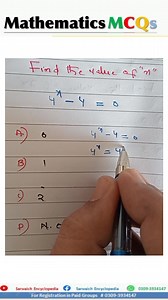 Mathematics MCQs
Find the value of "x"
4ˣ - 4 = 0
A) 0
4ˣ - 4 = 0
B) 1
4ˣ = 4
C) 2
D) N.O
Sarwaich Encyclopedia
Sarwaich Encyclopedia
0309-3934147
For Registration in Paid Groups
0309-3934147